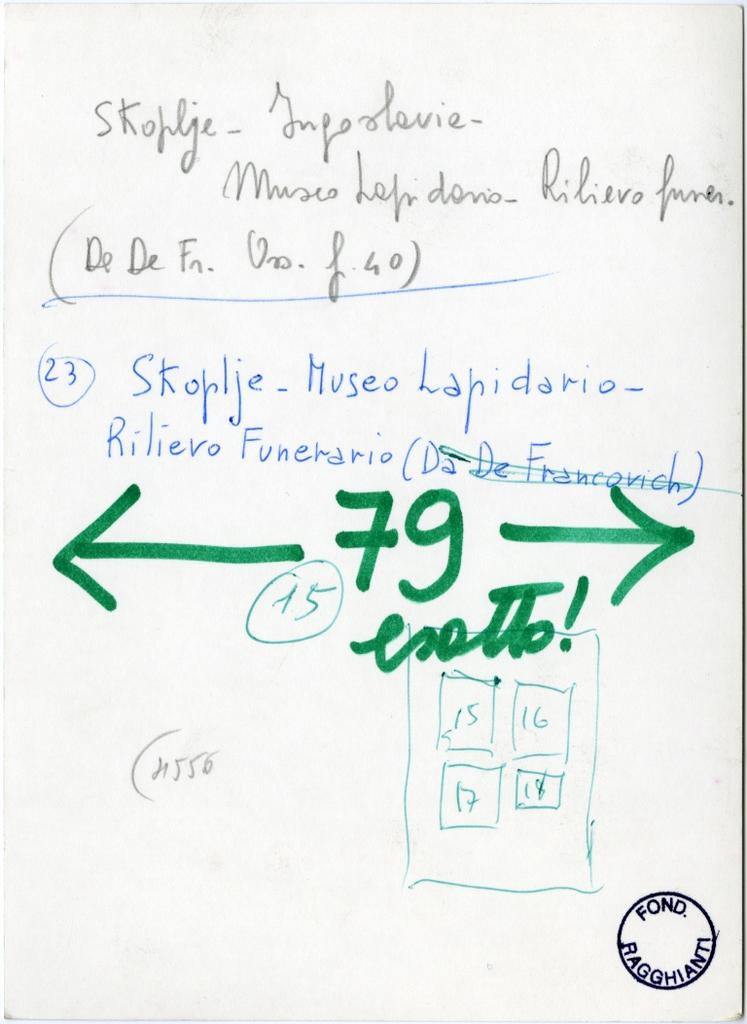 Skoplje - Jugoslavia -
Museo Lapidario - Rilievo funer.
(Da De Fr. Oss. f. 40)
23 Skoplje - Museo Lapidario -
Rilievo Funerario (Da De Francovich)
79
15 esatto!
15 16
17 18
(4556
FOND. RAGGHIANTI